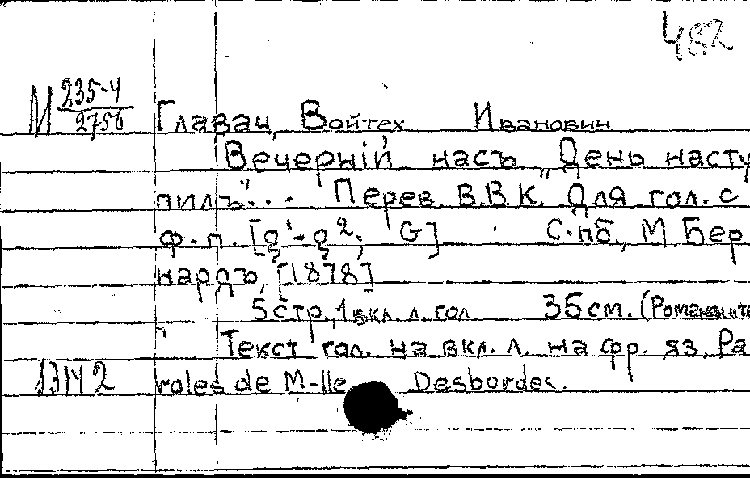 482
М 235-4/2756
Главач, Войтех Иванович
Вечернiй часъ „День насту
пилъ"... Перев. В.В.К. Для гол. с
ф.-п. [g¹-g²; G] С.пб., М. Бер
нардъ, [1878]
5 стр., 1 вкл. л. гол. 35 см. (Романсы
Текст гол. на вкл. л. на фр. яз. Pa
13142 roles de M-lle Desbordes.